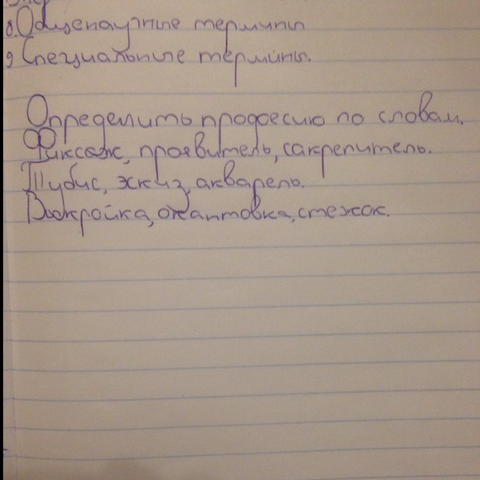 8. Общенаучные термины
9 Специальные термины.
Определить професию по словам.
Фиксаж, проявитель, сакрепитель.
Тубис, эскиз, акварель.
Выкройка, окантовка, стежок.